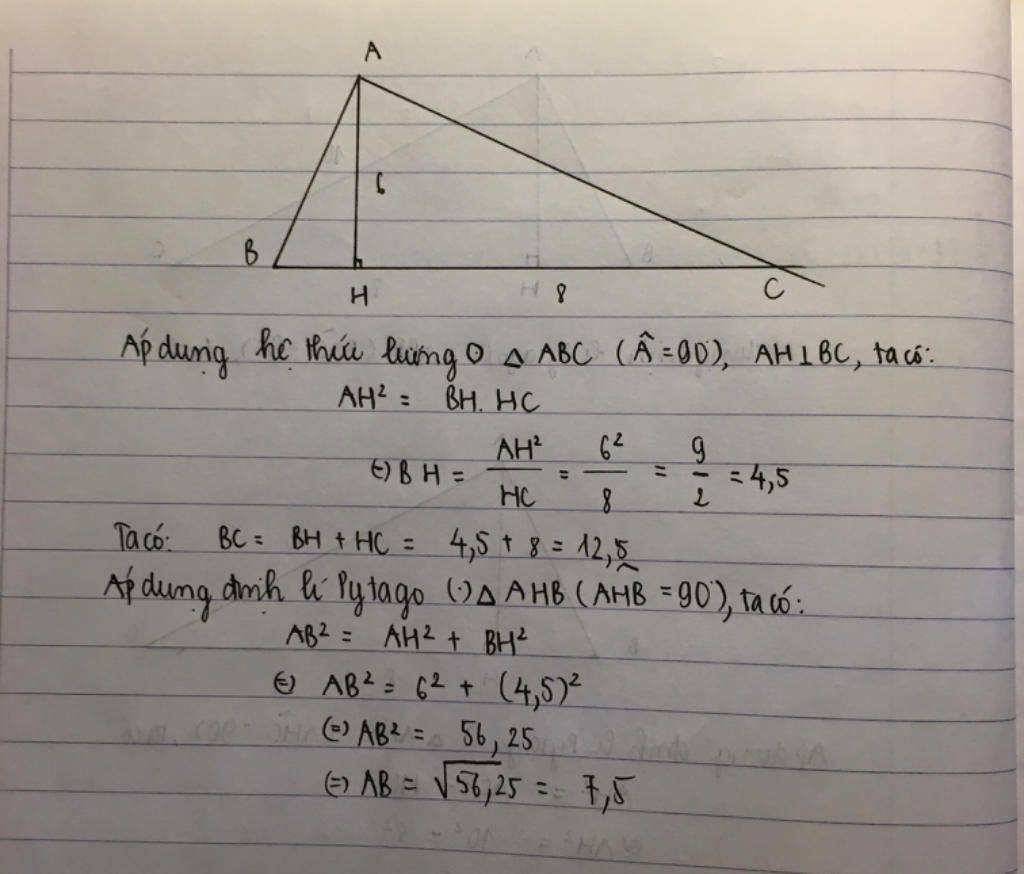 A
6
B
H
8
C
Áp dụng hệ thức lượng ⊙ △ ABC (Â = 90°), AH ⊥ BC, ta có:
AH² = BH. HC
(=) BH = AH²/HC = 6²/8 = 9/2 = 4,5
Ta có: BC = BH + HC = 4,5 + 8 = 12,5
Áp dụng định lí Pytago (·) △ AHB (AHB̂ = 90°), ta có:
AB² = AH² + BH²
(=) AB² = 6² + (4,5)²
(=) AB² = 56,25
(=) AB = √56,25 = 7,5